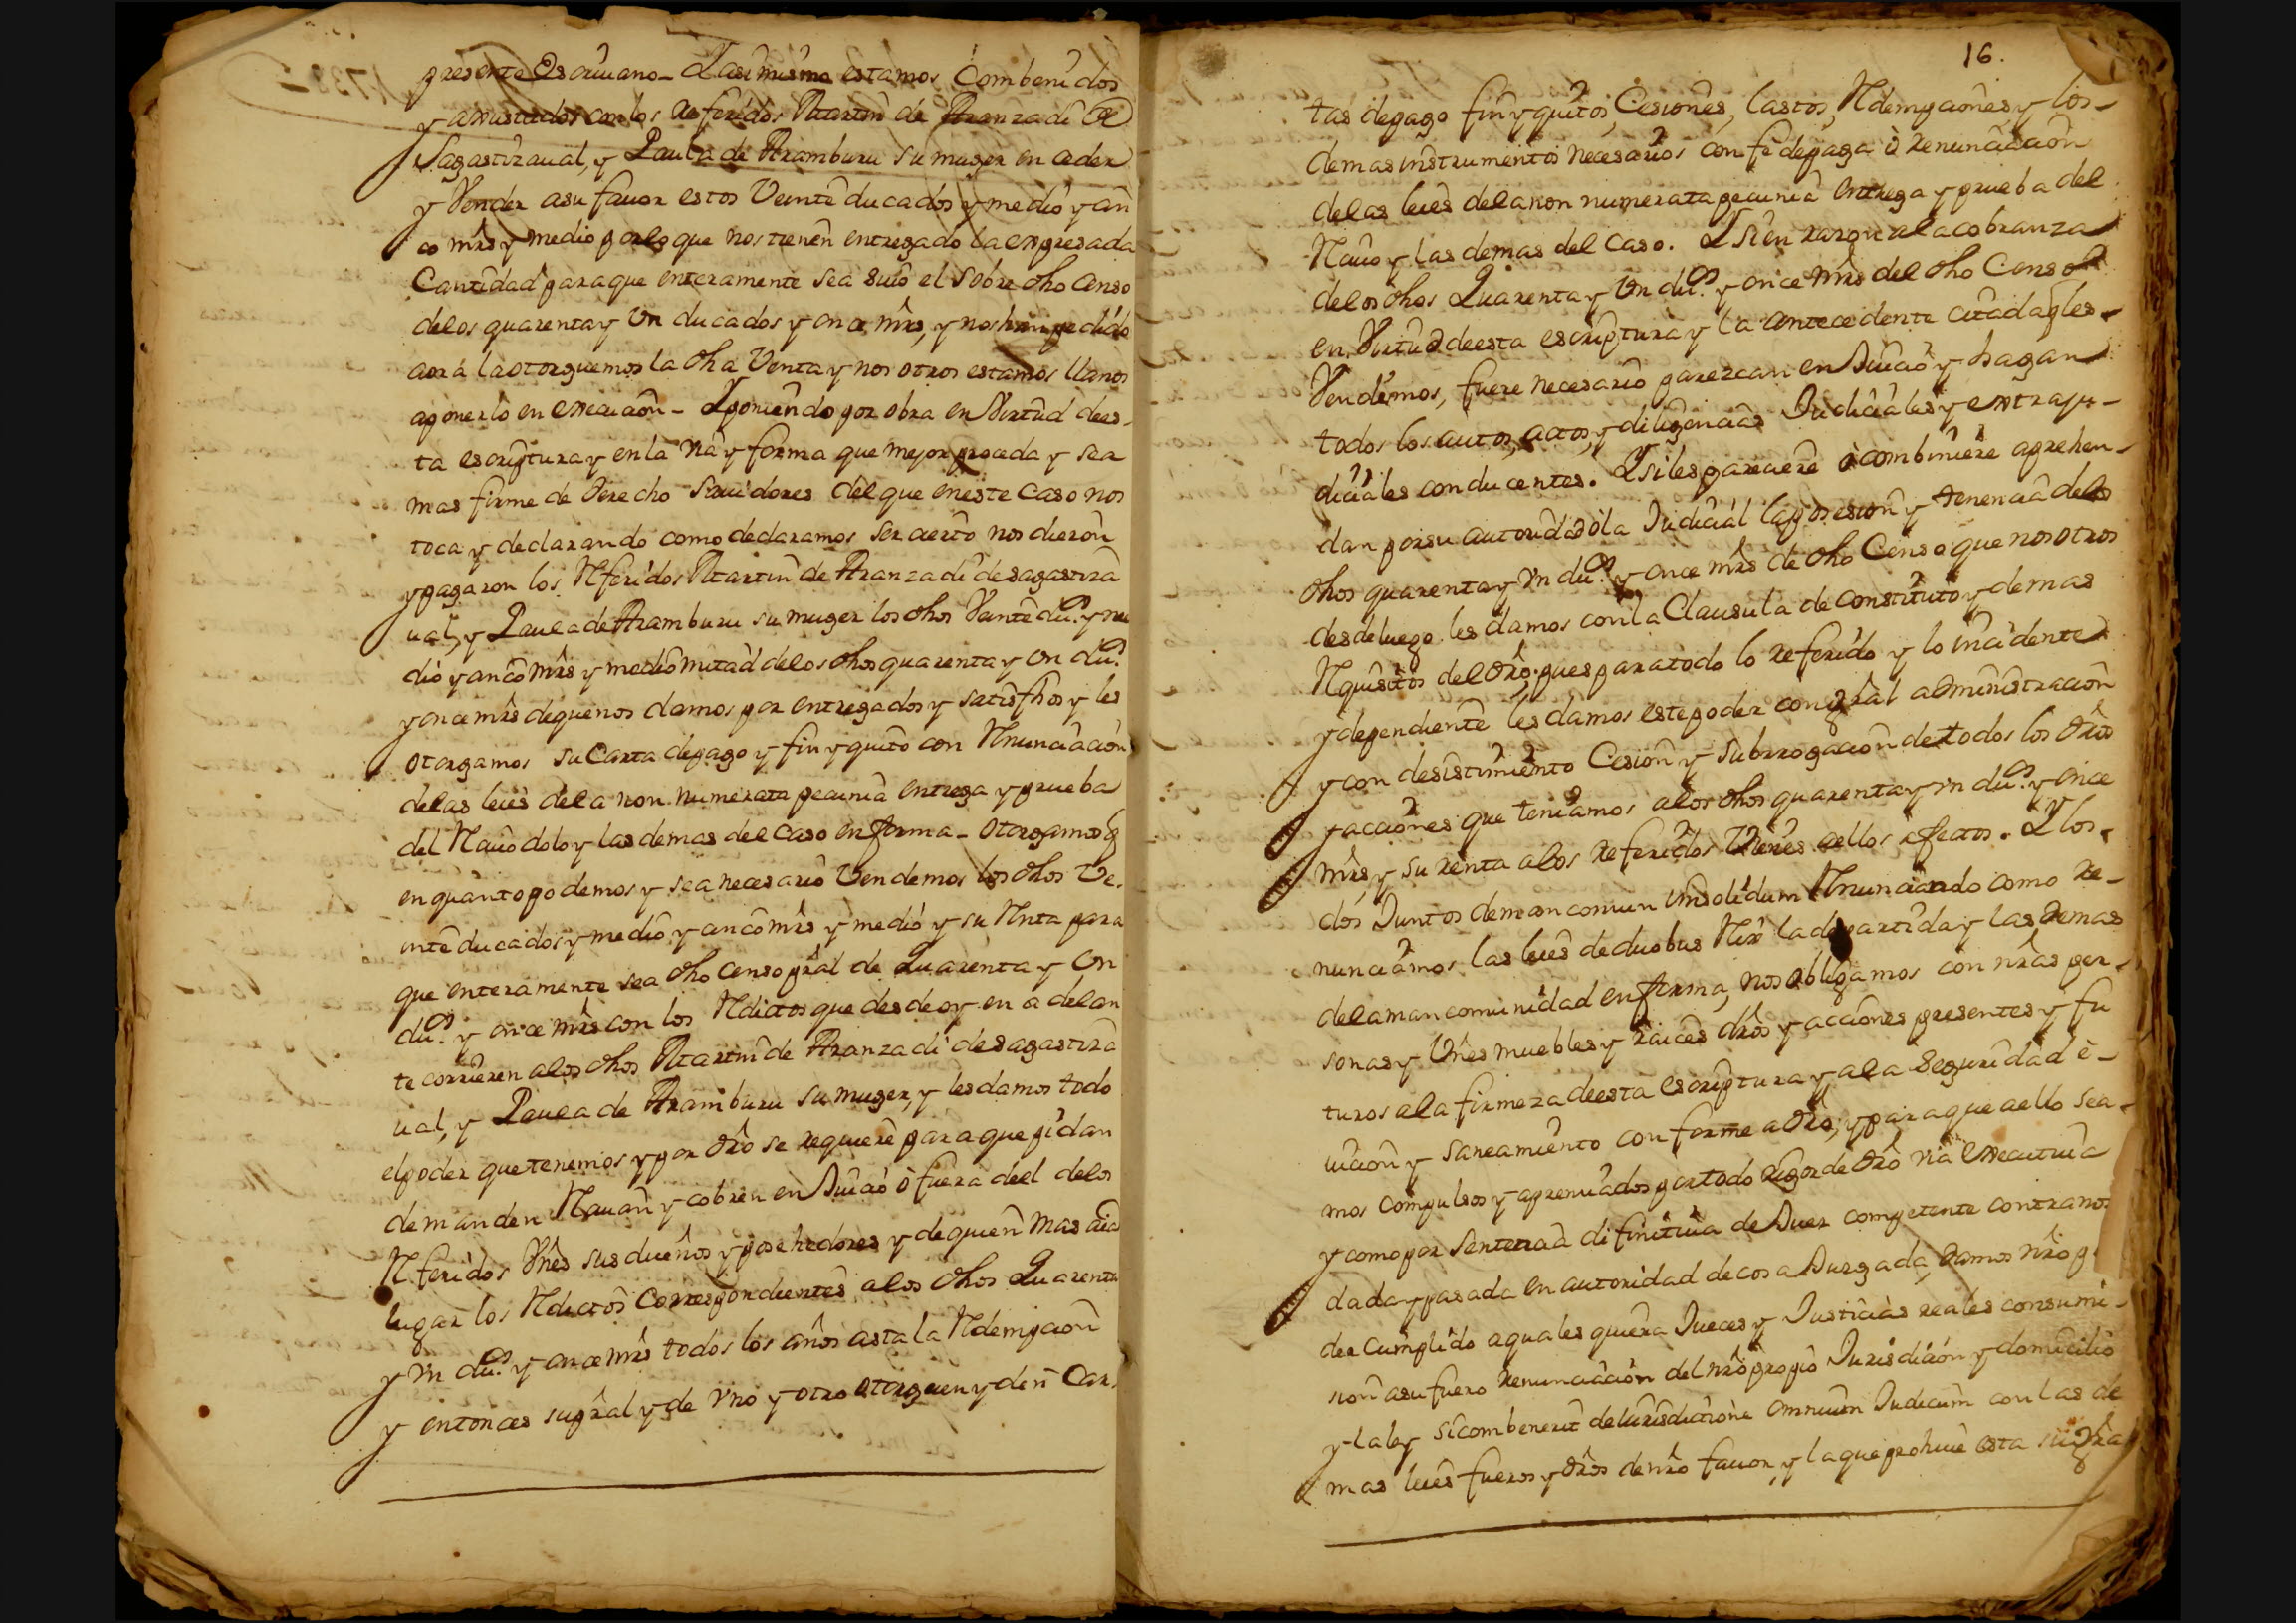 presente Escriuano - Y asimismo estamos Combenidos
y amistados con los referidos Martin de Aranzadi de
Sagastizaual, y Paula de Aramburu su muger en ceder
y Vender a su fauor estos Veinte ducados y medio y cin
co mrs y medio por lo que nos tienen entregado la expresada
Cantidad para que enteramente sea suio el sobre dho Censo
de los quarenta y Un ducados y once mrs, y nos han pedido
aora la otorguemos la dha Venta y nosotros estamos llanos
a ponerlo en execucion - Y poniendo por obra en Virtud de es-
ta escriptura y en la via y forma que mejor proceda y sea
mas firme de derecho sauidores del que en este caso nos
toca y declarando como declaramos ser cierto nos dieron
y pagaron los Referidos Martin de Aranzadi de sagastiza
ual, y Paula de Aramburu su muger los dhos Veinte dus. y me
dio y cinco mrs y medio mitad de los dhos quarenta y un dus.
y once mrs de que nos damos por entregados y satisfhos y les
otorgamos su Carta de pago y fin y quito con Renunciacion
de las leies de la non numerata pecunia entrega y prueba
del Reciuo dolo y las demas del caso en forma - otorgamos q
en quanto podemos y sea necesario Vendemos los dhos Ve-
inte ducados y medio y cinco mrs y medio y su Renta para
que enteramente sea dho censo pral de Quarenta y Un
dus. y once mrs con los Reditos que desde oy en adelan
te corrieren a los dhos Martin de Aranzadi de sagastiza
ual, y Paula de Aramburu su muger, y les damos todo
el poder que tenemos y por dro se requiere para que pidan
demanden Reciuan y cobren en Juicio ò fuera del de los
Referidos Vnes sus dueños y posehedores y de quien mas aia
lugar los Reditos Correspondientes a los dhos Quarenta
y Vn dus. y once mrs todos los años asta la Redempcion
y entonces su pral y de Vno y otro otorguen y den Car-
16.
tas de pago fin y quitos, Cesiones, lastos, Redempciones y los
demas instrumentos necesarios con fe de paga ò renunciacion
de las leies de la non numerata pecunia entrega y prueba del
Reciuo y las demas del caso. Y si en razon a la cobranza
de los dhos Quarenta y Un dus. y once mrs del dho Censo
en Virtud de esta escriptura y la antecedente citada q les
Vendemos, fuere necesario parezcan en Juicio y hagan
todos los autos, actos, y diligencias Judiciales y extraju-
diciales conducentes. Y si les pareciere ò combiniere aprehen-
dan por su autoridad ò la Judicial la posesion y tenencia de los
dhos quarenta y Vn dus. y once mrs de dho Censo que nosotros
desde luego les damos con la Clausula de constituto y demas
Requisitos del dro; pues para todo lo referido y lo incidente
y dependiente les damos este poder con gral administracion
y con desistimiento Cesion y subrrogacion de todos los dros
y acciones que teniamos a los dhos quarenta y vn dus. y once
mrs, y su renta a los referidos Vienes a ellos afectos. Y los
dos Juntos de mancomun Vnsolidum Renunciando como re-
nunciamos las leies de duobus Rex la de partida y las demas
de la mancomunidad en forma, nos obligamos con nras per-
sonas y Vnes muebles y raices dros y acciones presentes y fu
turos a la firmeza de esta escriptura y a la seguridad è-
uicion y saneamiento conforme a dro, y para que a ello sea-
mos compulsos y apremiados por todo rigor de dro via executiua
y como por Sentencia difinitiua de Juez competente contra nos
dada y pasada en autoridad de cosa Juzgada, damos nro p
der cumplido a quales quiera Jueces y Justicias reales con sumi-
sion a su fuero renunciacion del nro propio Jurisdicion y domicilio
y la ley si combenerit de Jurisdictione omnium Judicum con las de
mas leies fueros y dros de nro fauor, y la que prohiue esta su gral